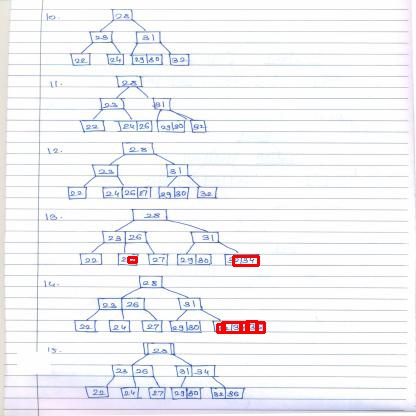 10. 28
23 31
22 24 29 30 32
11. 28
23 31
22 24 26 29 30 32
12. 28
23 31
22 24 26 27 29 30 32
13. 28
23 26 31
22 27 29 30 34
14. 28
23 26 31
22 24 27 29 30
15. 28
23 26 31 34
22 24 27 29 30 32 36